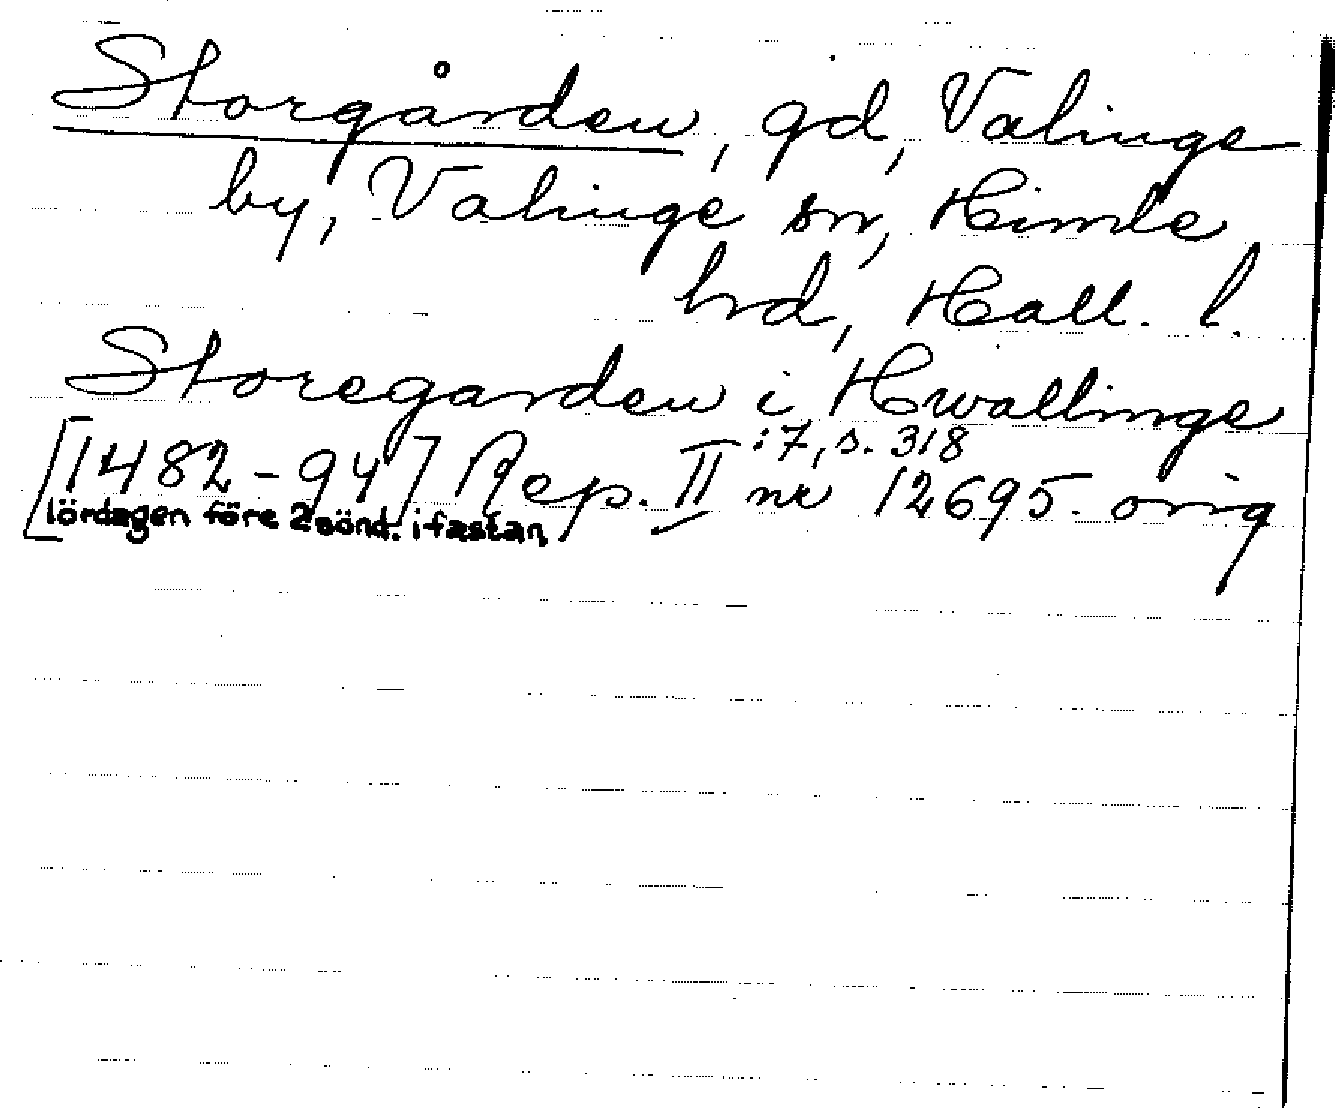 Storgården, gd, Valinge
by, Valinge sn, Himle
hrd, Hall. l.
Storegarden i Hwallinge
[1482-94] Rep. II :7, s. 318 nr 12695. orig
[lördagen före 2 sönd. i fastan